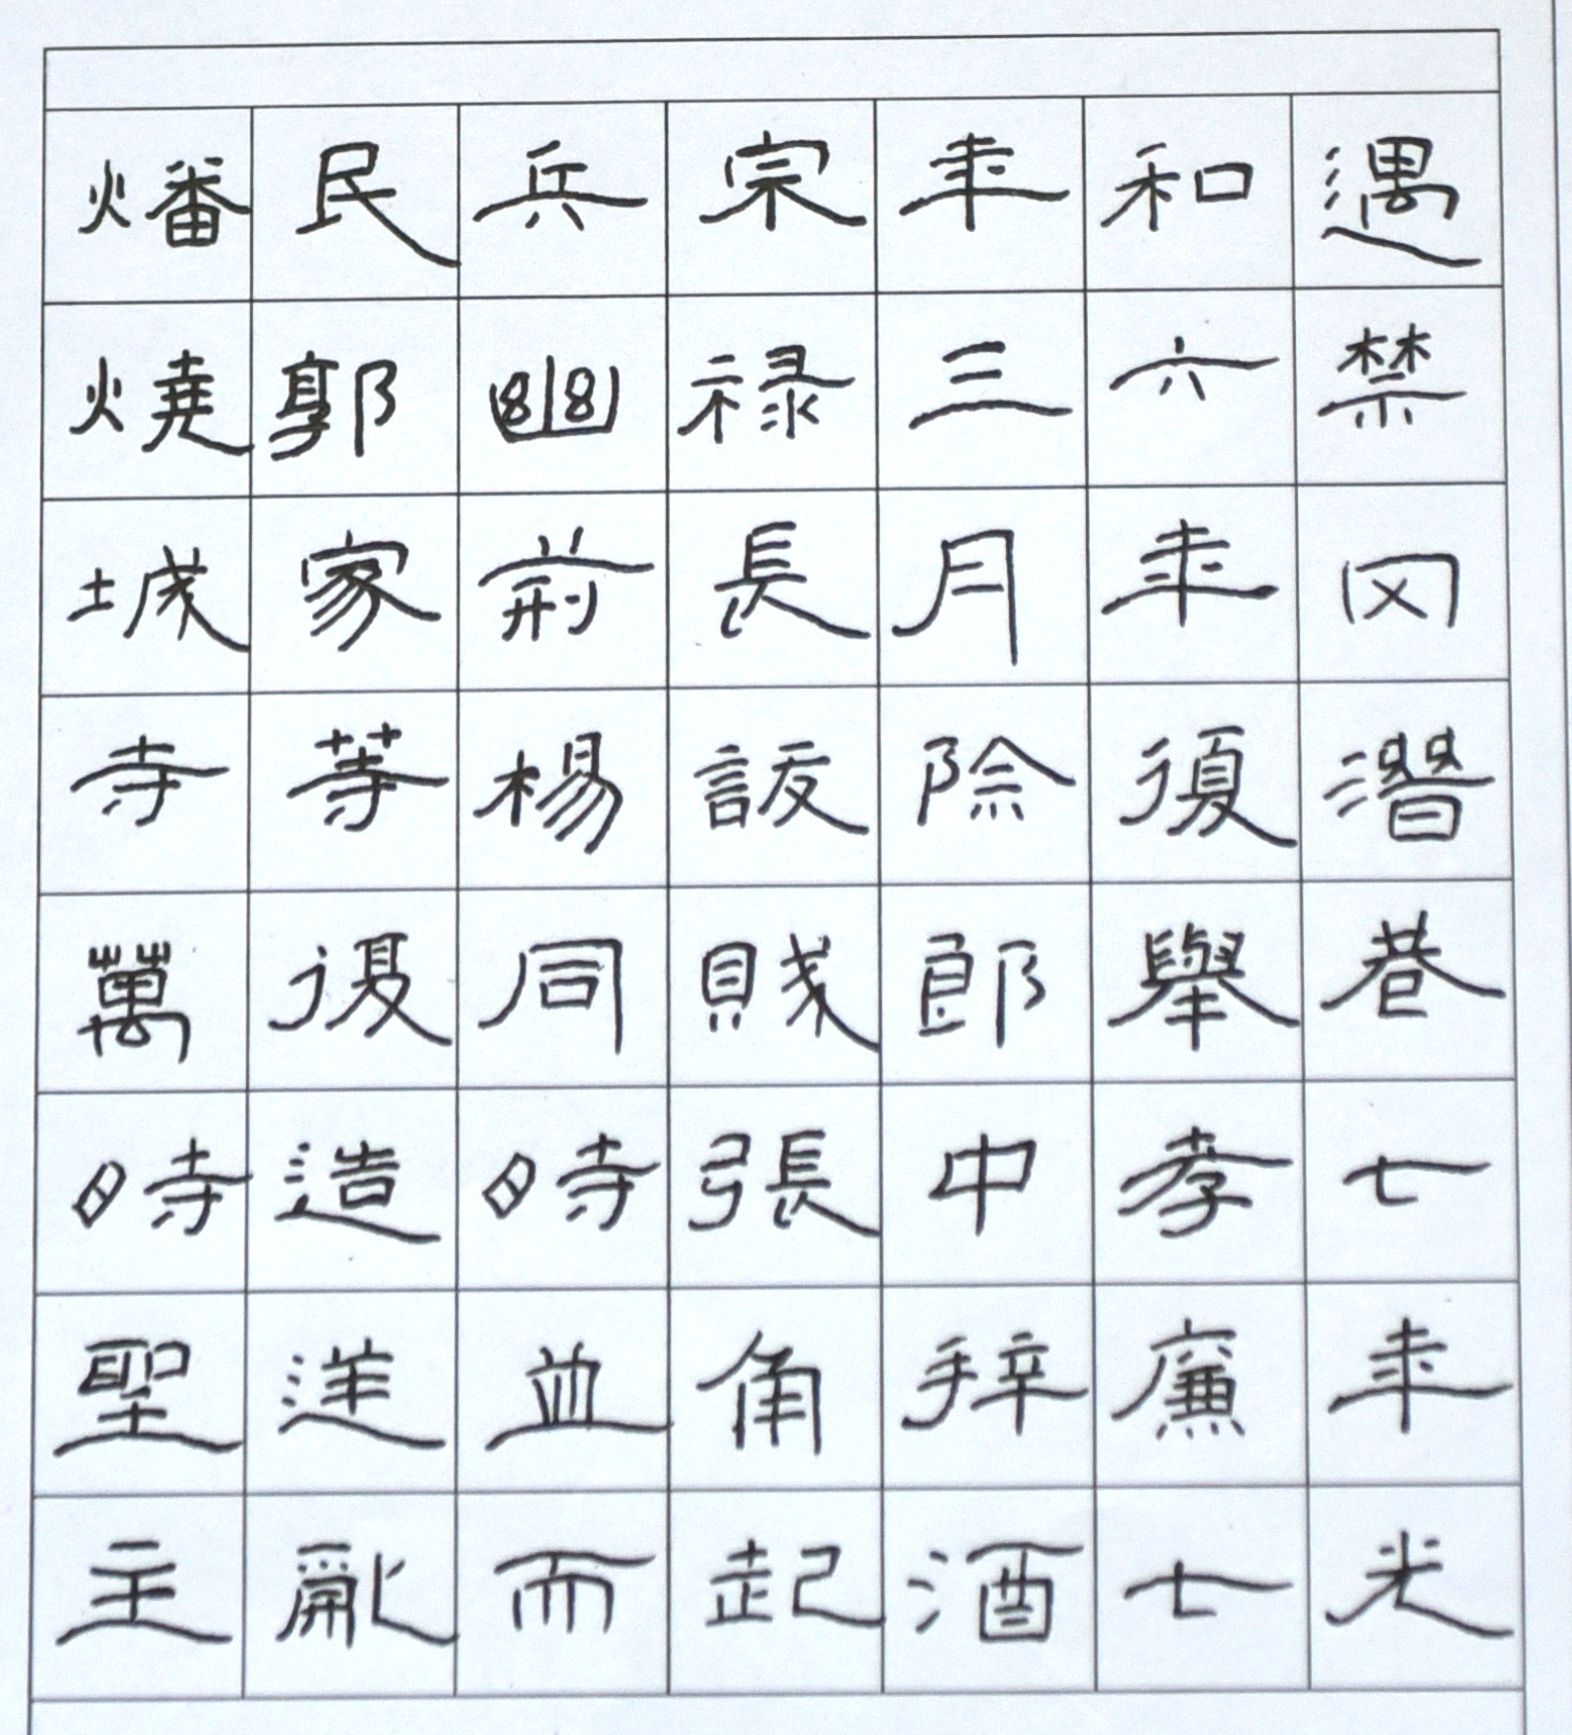 遇禁冈潛巷七年光
和六年復舉孝廉七
年三月除郎中拜酒
宗禄長訞賊張角起
兵幽荊楊同時並而
民郭家等復造逆亂
燔燒城寺萬時聖主